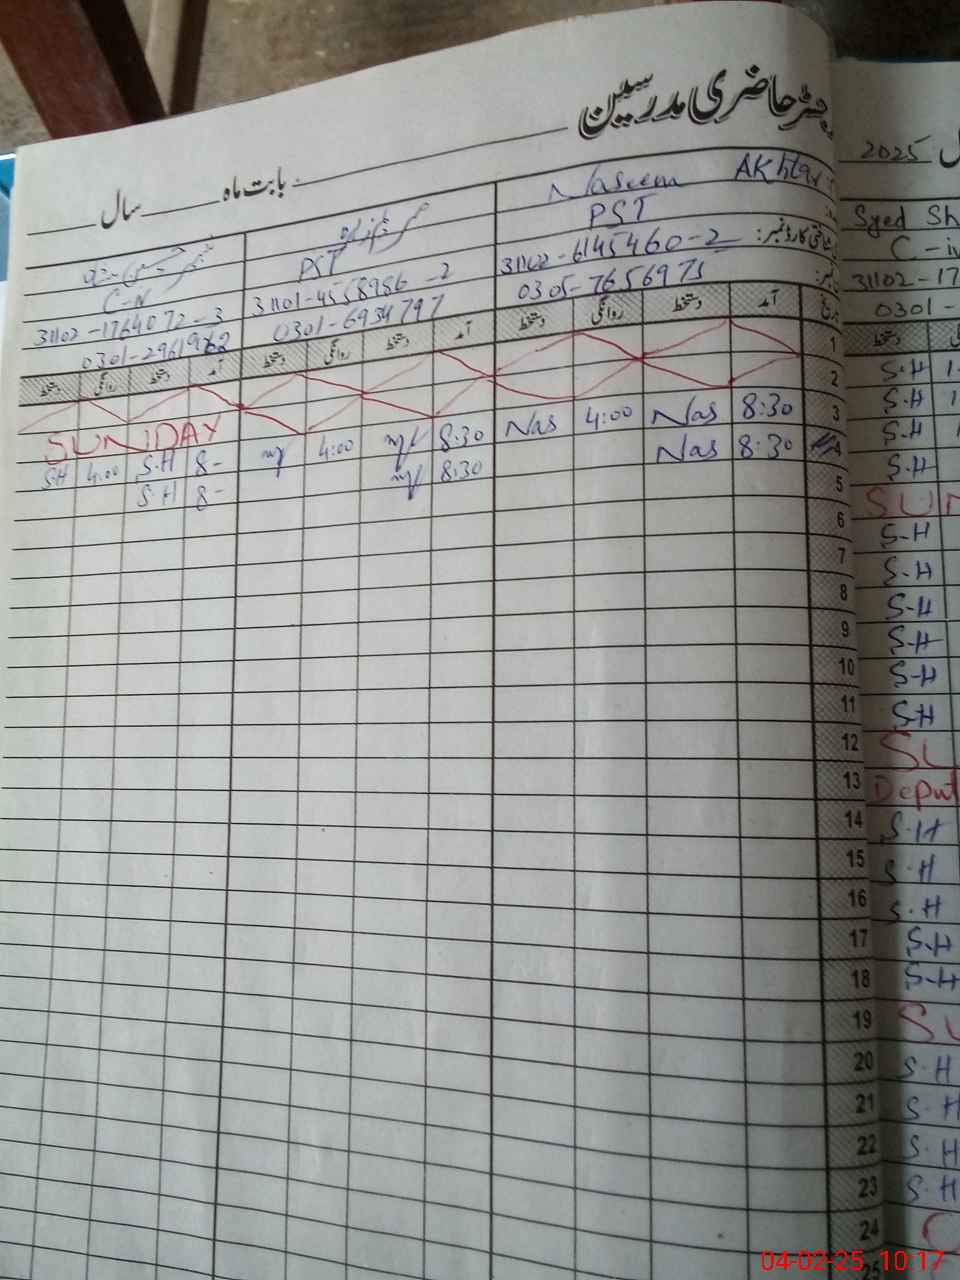 رجسٹر حاضری مدرسین
بابت ماہ سال
Naseem Akhtar
PST
شناختی کارڈ نمبر: 31102-6145460-2
0305-7656971
PST
31101-4558956-2
0301-6934797
C-N
31102-1764072-3
0301-2961962
تاریخ آمد دستخط روانگی دستخط آمد دستخط روانگی دستخط آمد دستخط روانگی دستخط
1
2 SUNDAY
3 8:30 Nas 4:00 Nas 8:30 4:00 8- S.H 4:00 S.H
4 8:30 Nas 8:30 8- S.H
5
6
7
8
9
10
11
12
13
14
15
16
17
18
19
20
21
22
23
24
25
2025
Syed Sh
31102-17
0301-
دستخط
S.H
S.H
S.H
S.H
SUN
S-H
S.H
S-H
S-H
S-H
S-H
SU
Deput
S.H
S.H
S.H
S-H
S-H
SU
S.H
S.H
S.H
S.H
04-02-25 10:17